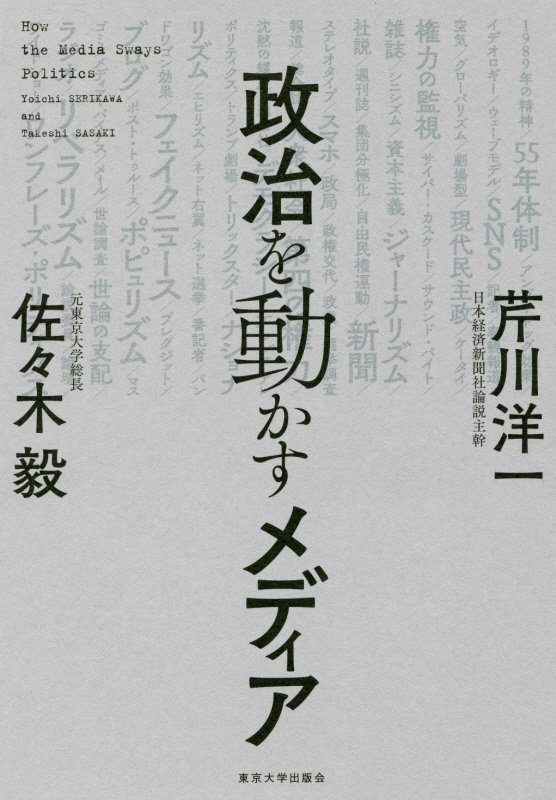 How
the Media Sways
Politics
Yoichi SERIKAWA
and
Takeshi SASAKI
政治を動かすメディア
芹川洋一
日本経済新聞社論説主幹
佐々木 毅
元東京大学総長
1989年の精神／55年体制／
イデオロギー／ウェーブモデル／SNS／
空気／グローバリズム／劇場型／現代民主政
権力の監視／サイバーカスケード／サウンドバイト／
雑誌／シニシズム／資本主義／ジャーナリズム
社説／週刊誌／集団分極化／自由民権運動／新聞
ステレオタイプ／スマホ／政局／政権交代／
報道
沈黙の螺旋
ポリティクス／トランプ劇場／トリックスター／ナショナ
リズム／ニヒリズム／ネット右翼／ネット選挙／番記者／バン
ドワゴン効果／フェイクニュース
ブログ／ポスト・トゥルース／ポピュリズム／マス
メール／世論調査／世論の支配
リベラリズム
東京大学出版会